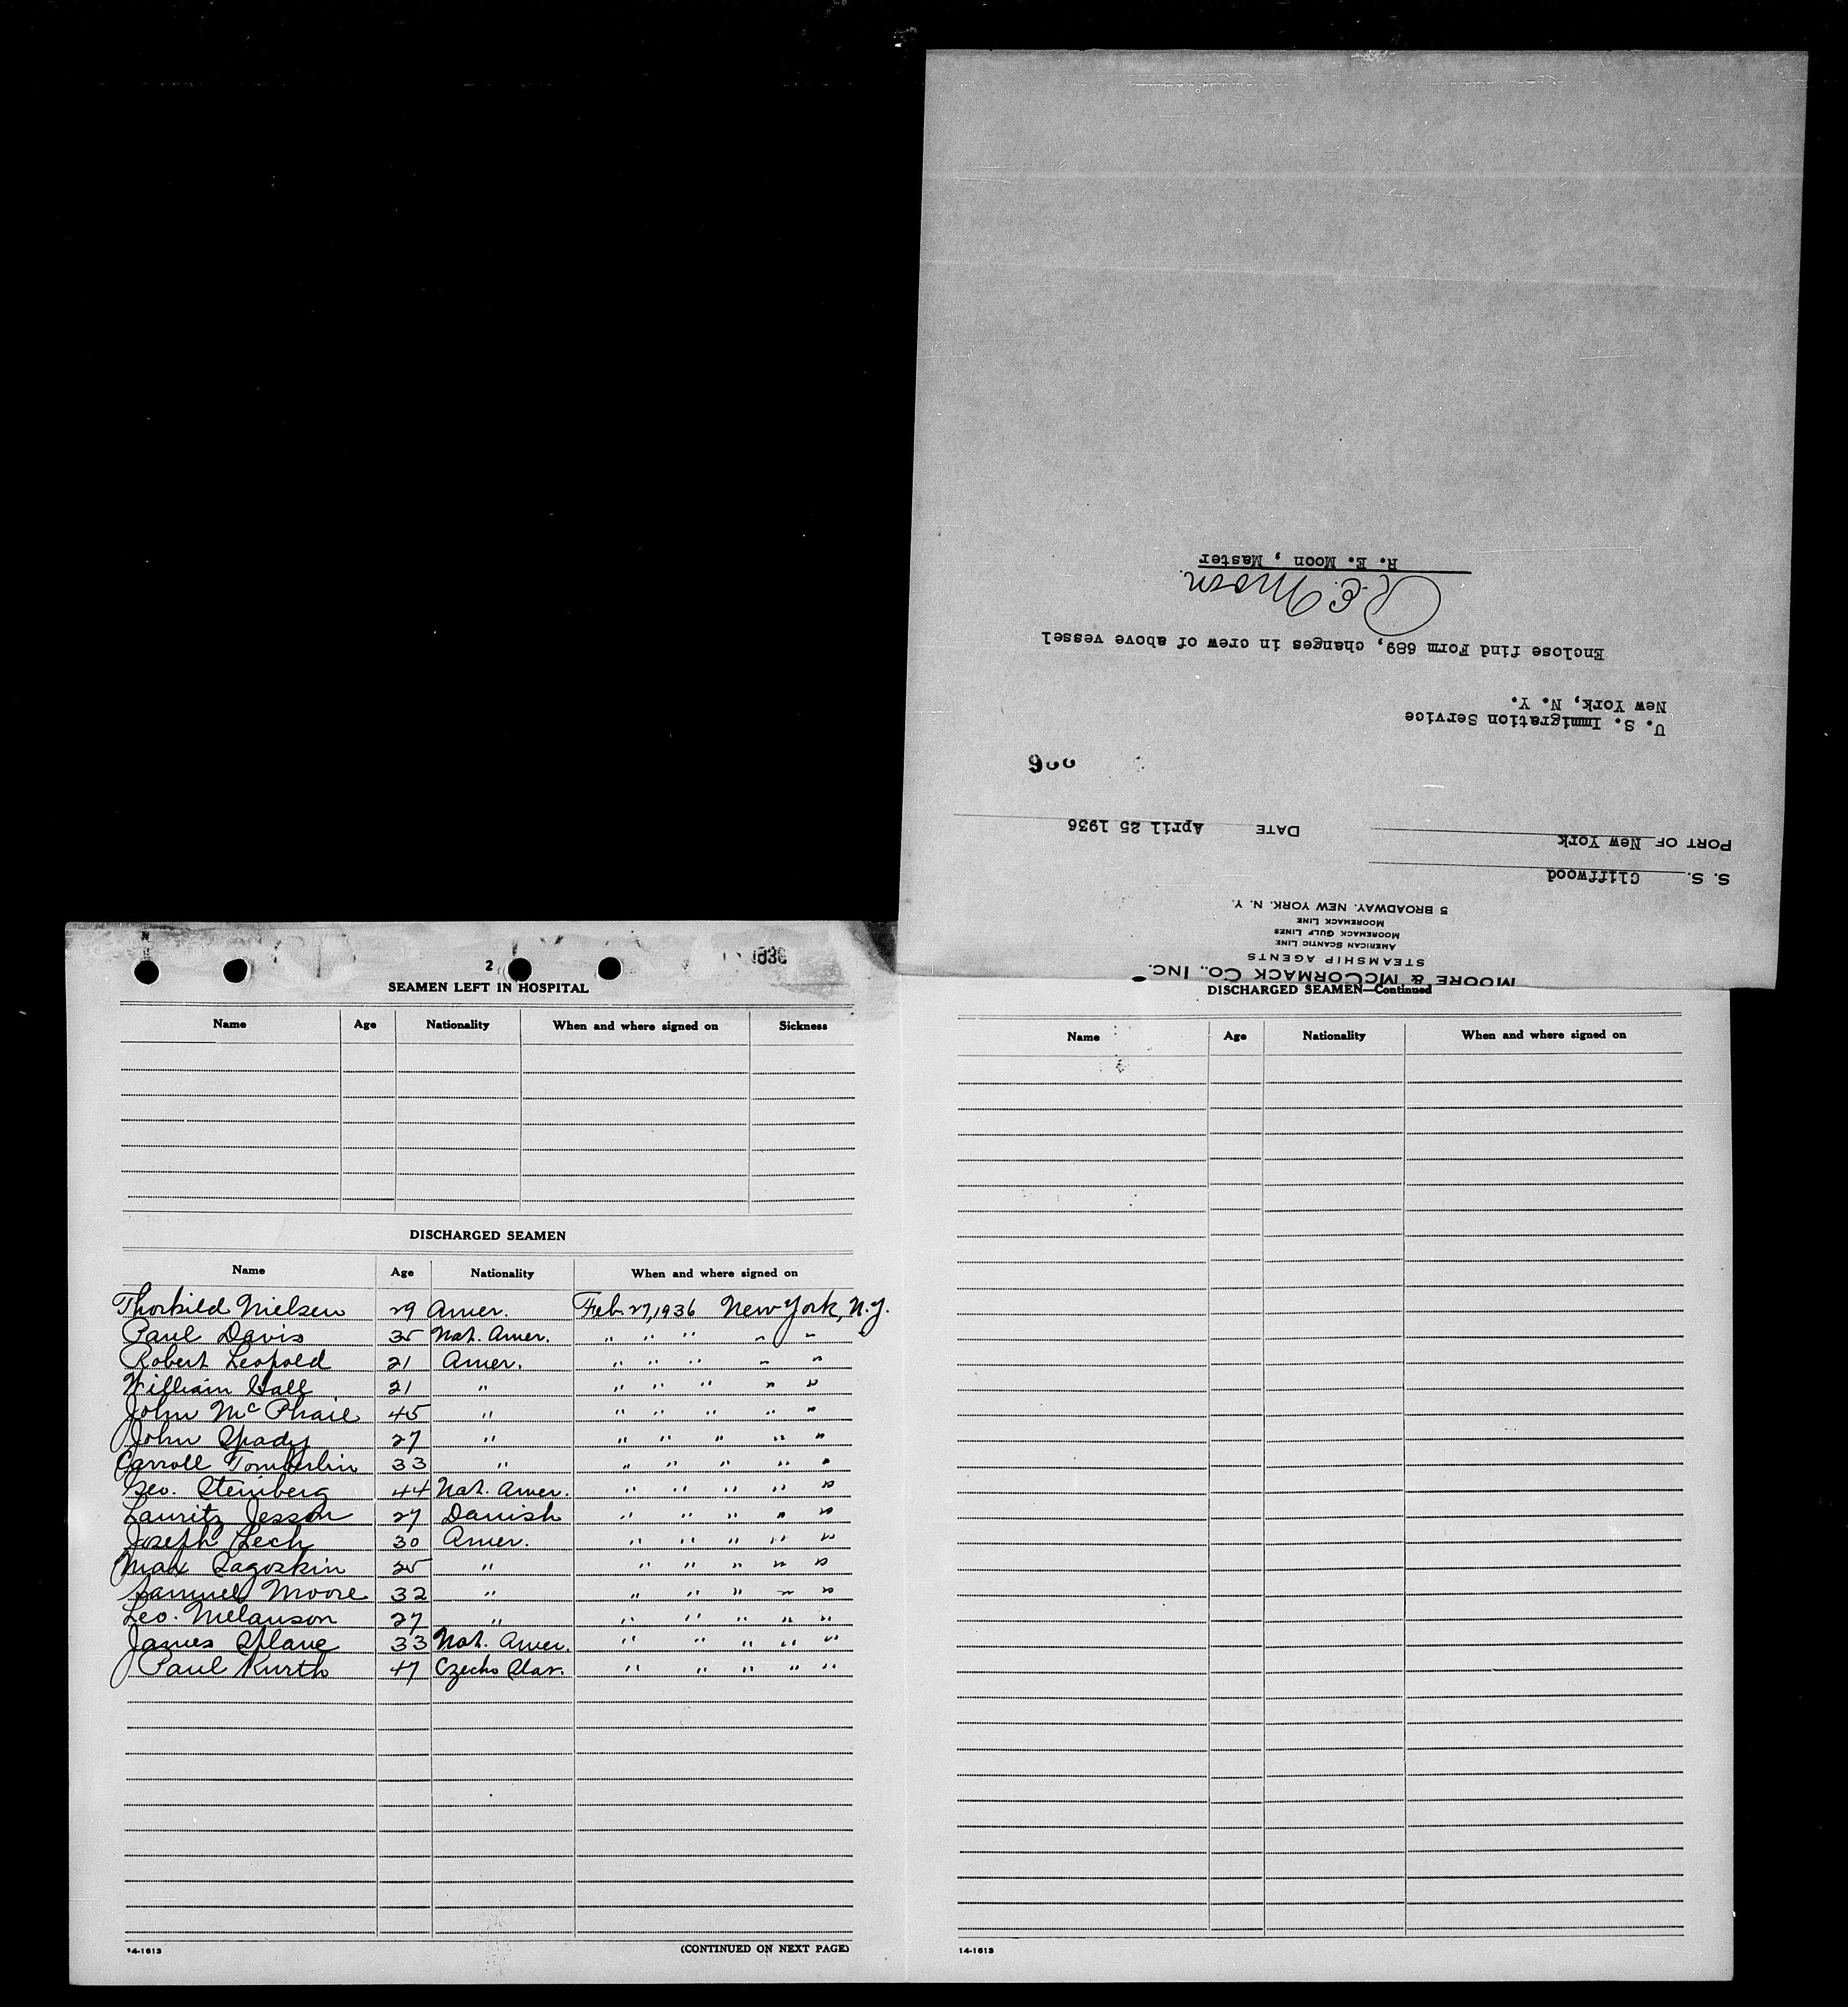 MOORE & MCCORMACK CO., INC.
STEAMSHIP AGENTS
AMERICAN SCANTIC LINE
MOOREMACK GULF LINES
MOOREMACK LINE
5 BROADWAY. NEW YORK. N. Y.
S. S. Cliffwood
PORT OF New York DATE April 25 1936
U. S. Immigration Service
New York, N. Y.
Enclose find Form 689, changes in crew of above vessel
R. E. Moon
R. E. Moon , Master
2
SEAMEN LEFT IN HOSPITAL
Name Age Nationality When and where signed on Sickness
DISCHARGED SEAMEN
Name Age Nationality When and where signed on
Thorkild Nielsen 29 Amer. Feb. 27, 1936 New York, N.Y.
Paul Davis 35 Nat. Amer. " " " " "
Robert Leopold 21 Amer. " " " " "
William Hall 21 " " " " " "
John McPhail 45 " " " " " "
John Spady 27 " " " " " "
Carroll Tomberlin 33 " " " " " "
Geo. Steinberg 44 Nat. Amer. " " " " "
Lauritz Jesson 27 Danish " " " " "
Joseph Lech 30 Amer. " " " " "
Max Zagoskin 25 " " " " " "
Samuel Moore 32 " " " " " "
Leo. Melanson 27 " " " " " "
James Splane 33 Nat. Amer. " " " " "
Paul Kurth 47 Czecho Slav. " " " " "
14-1613
(CONTINUED ON NEXT PAGE)
DISCHARGED SEAMEN—Continued
Name Age Nationality When and where signed on
14-1613